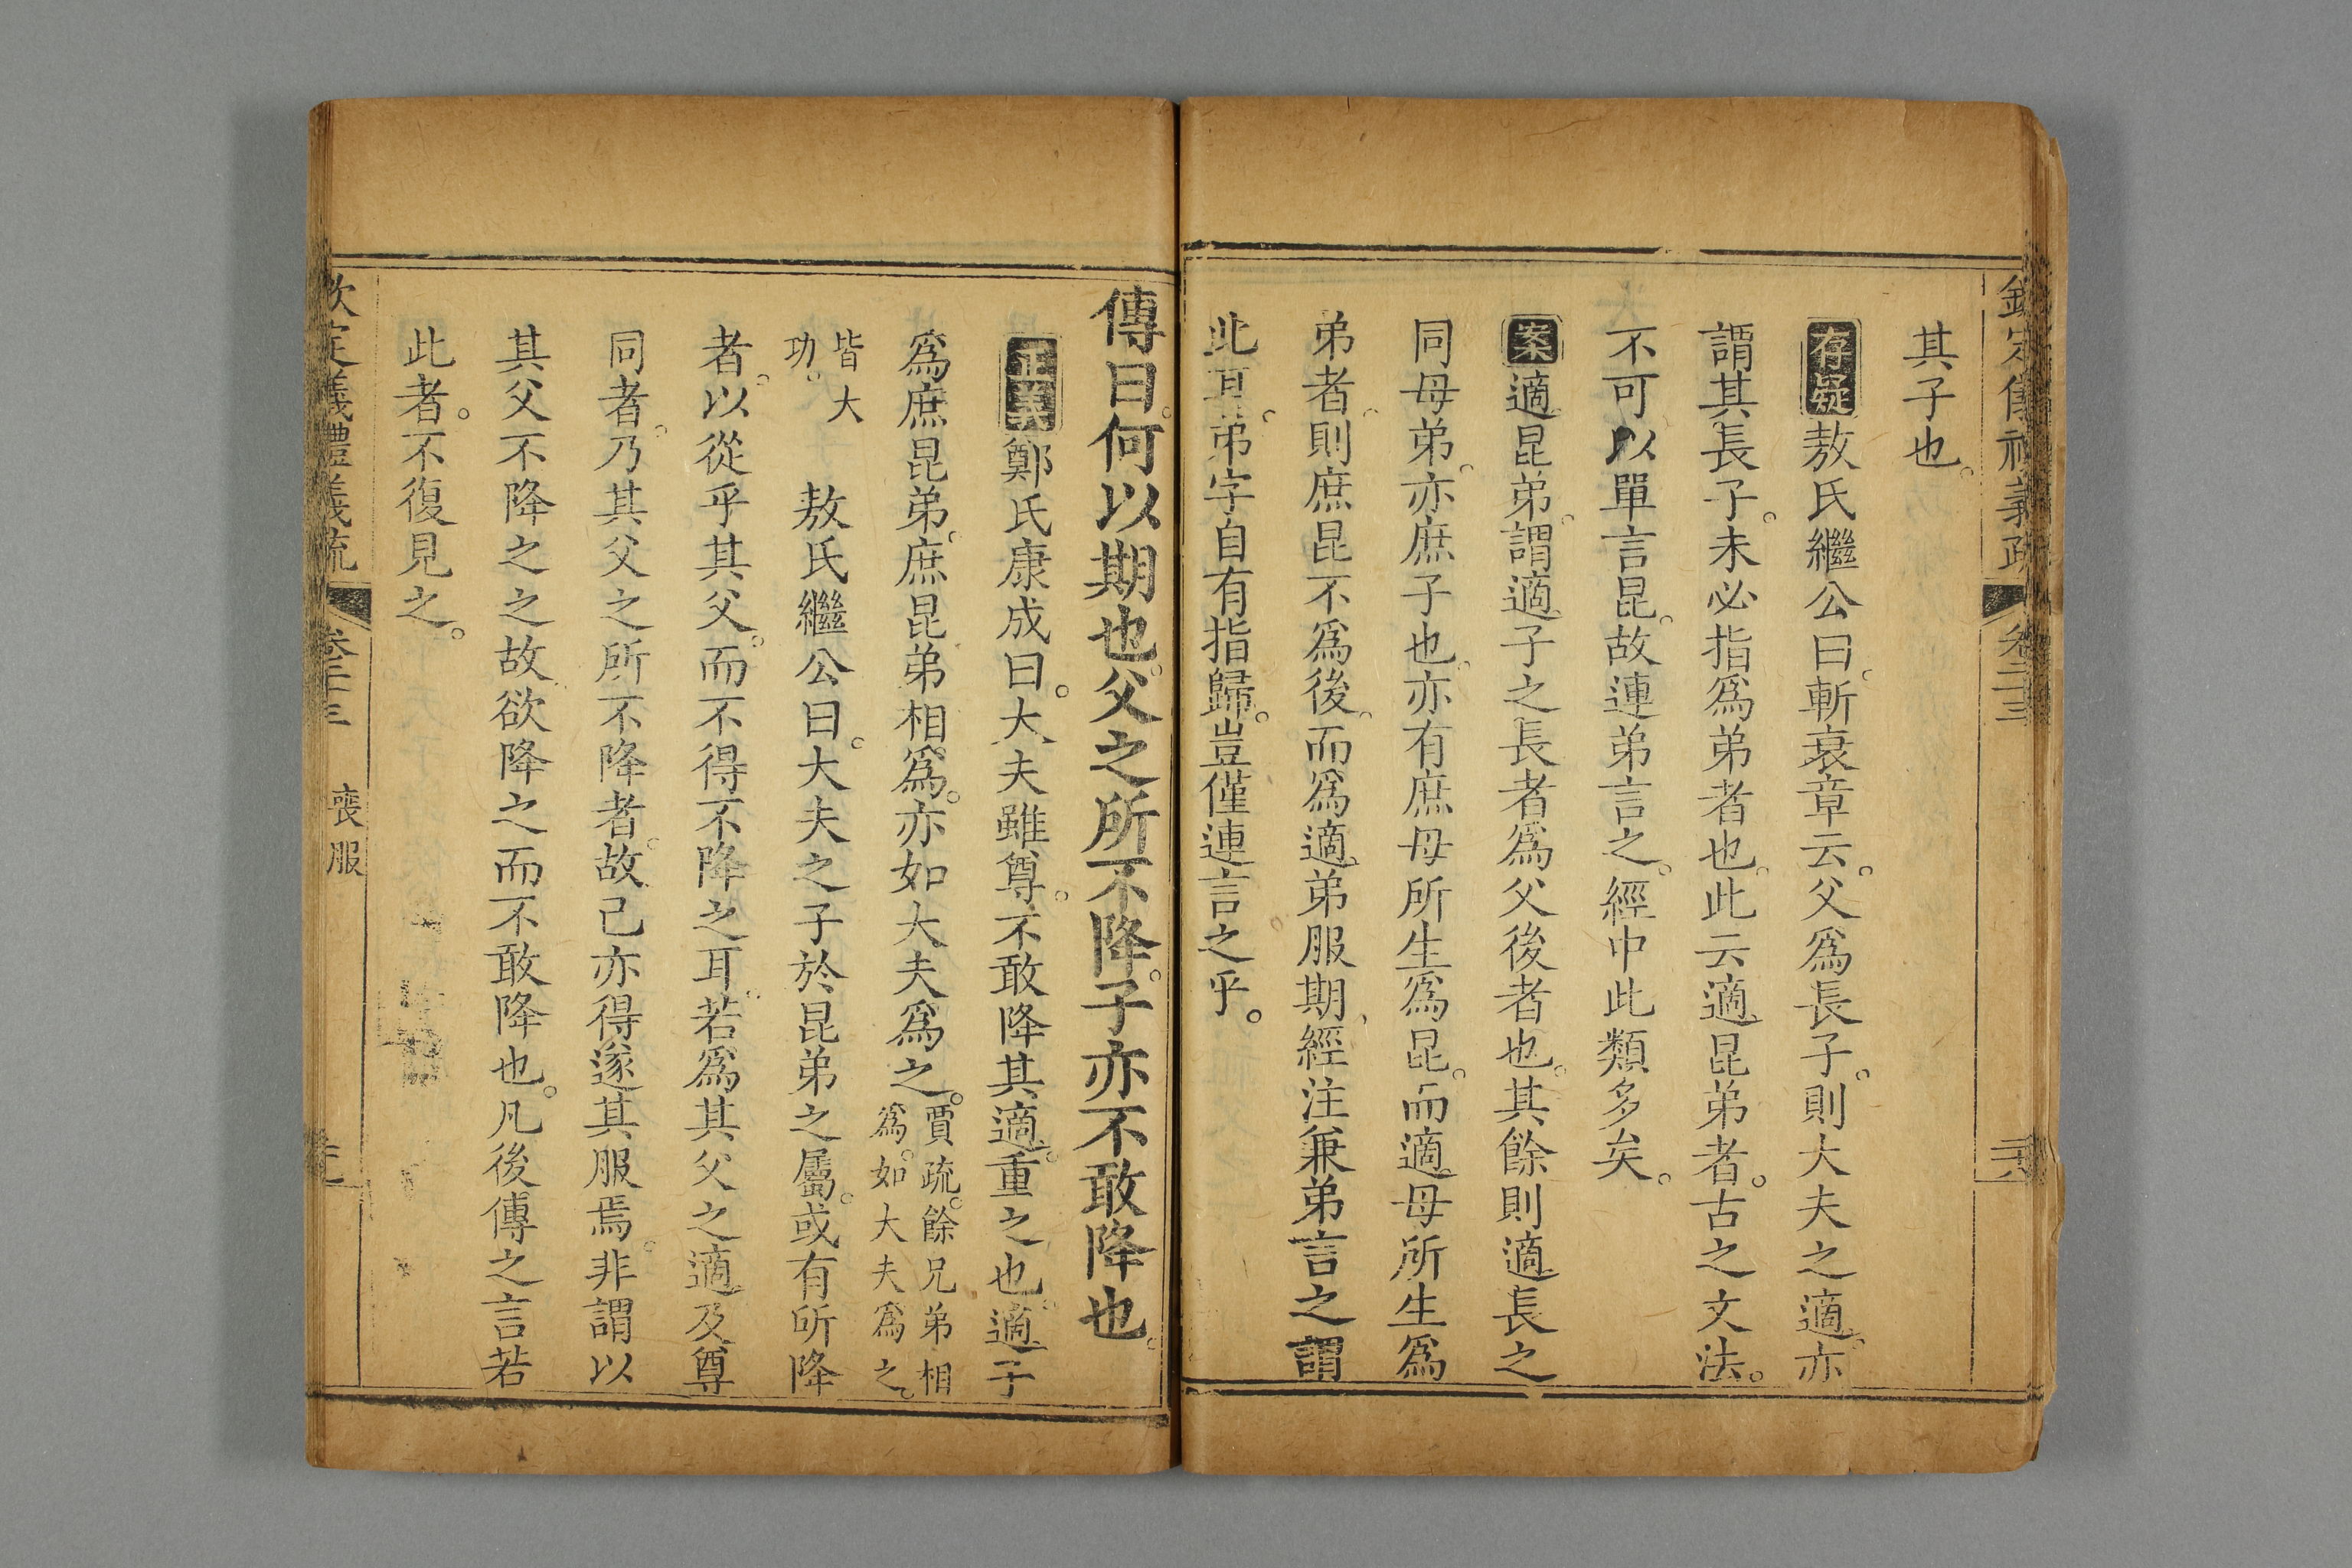 欽定儀禮義疏 卷二十三
其子也。
存疑敖氏繼公曰。斬衰章云。父爲長子。則大夫之適。亦
謂其長子。未必指爲弟者也。此云適昆弟者。古之文法。
不可以單言昆。故連弟言之。經中此類多矣。
案適昆弟。謂適子之長者爲父後者也。其餘則適長之
同母弟。亦庶子也。亦有庶母所生爲昆。而適母所生爲
弟者。則庶昆不爲後。而爲適弟服期。經注兼弟言之。謂
此耳。弟字自有指歸。豈僅連言之乎。
傳曰。何以期也。父之所不降。子亦不敢降也。
正義鄭氏康成曰。大夫雖尊。不敢降其適。重之也。適子
爲庶昆弟。庶昆弟相爲。亦如大夫爲之。賈疏。餘兄弟相
爲。如大夫爲之。
皆大
功。
敖氏繼公曰。大夫之子於昆弟之屬。或有所降
者。以從乎其父。而不得不降之耳。若爲其父之適及尊
同者。乃其父之所不降者。故己亦得遂其服焉。非謂以
其父不降之之故。欲降之而不敢降也。凡後傳之言若
此者。不復見之。
欽定儀禮義疏 卷二十三 喪服